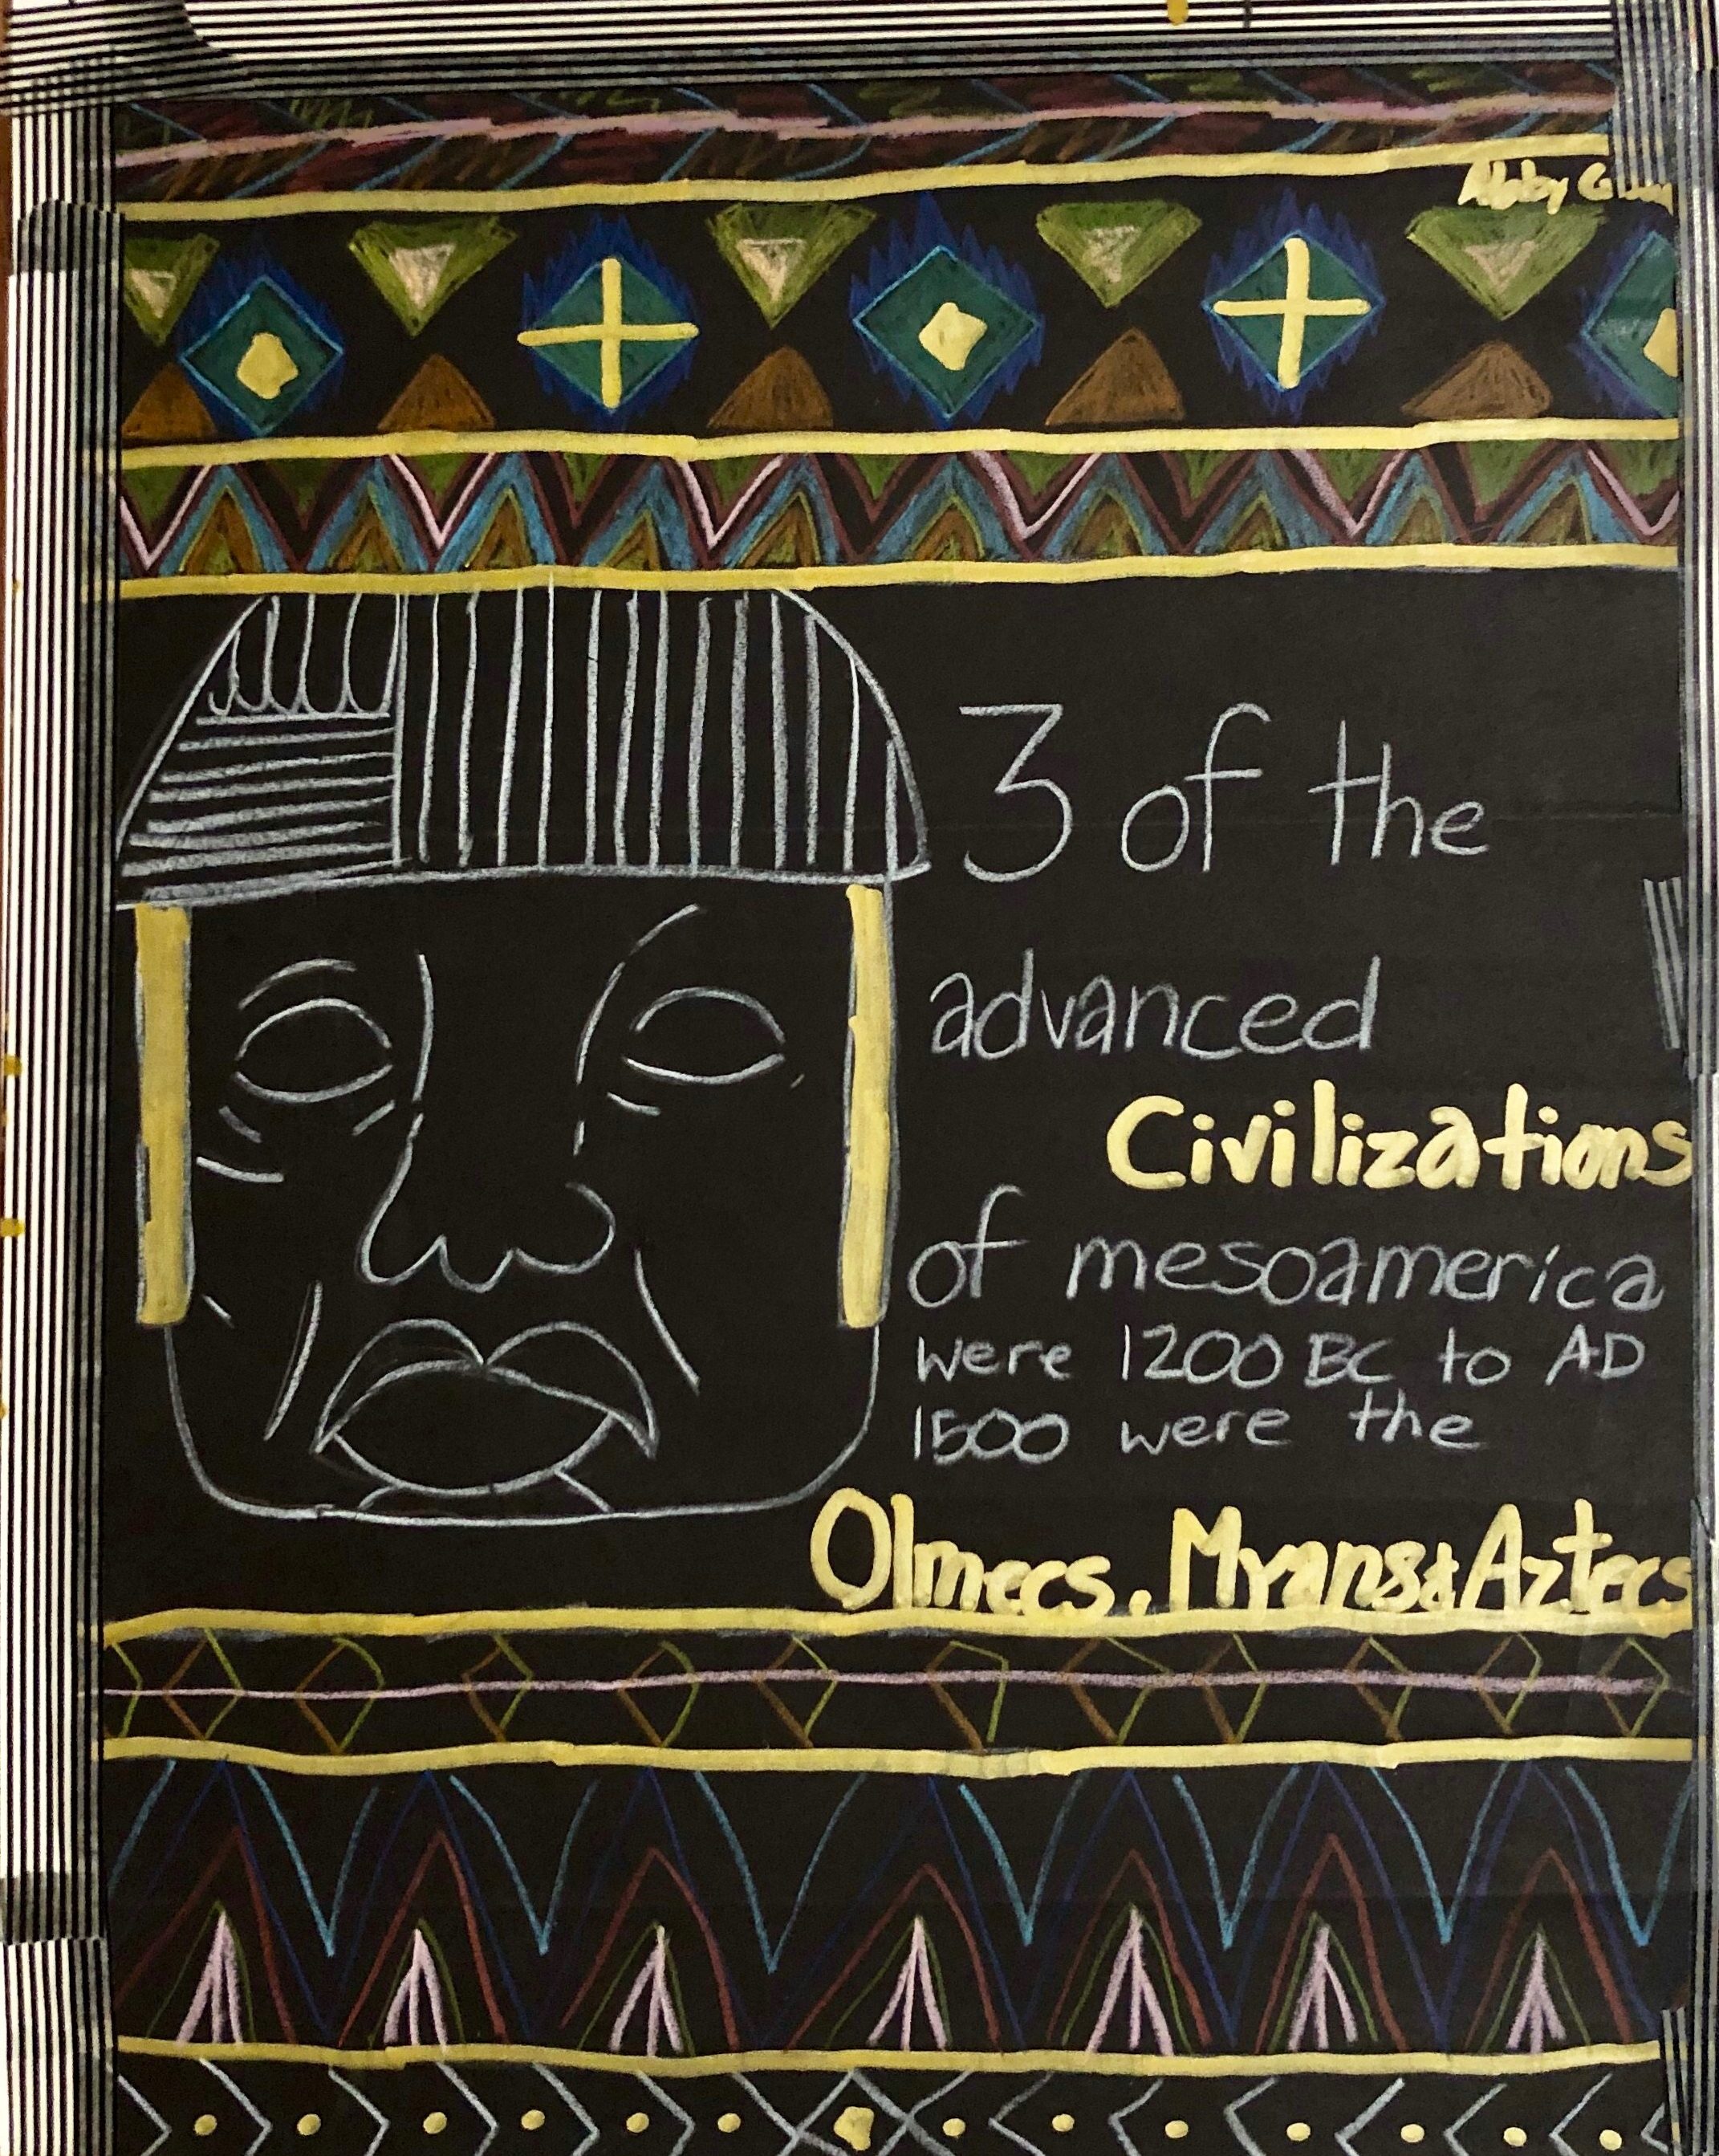 Abby
3 of the
advanced
Civilizations
of mesoamerica
were 1200 BC to AD
1500 were the
Olmecs, Myans & Aztecs